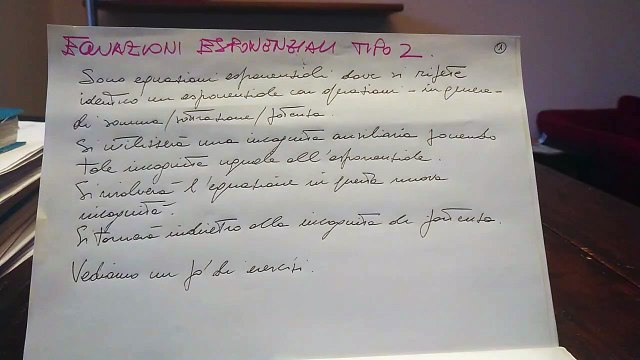 EQUAZIONI ESPONENZIALI TIPO 2.
1
Sono equazioni esponenziali dove si ripete
identico un esponenziale con operazioni - in genere -
di somma/sottrazione/potenza.
Si utilizzerà una incognita ausiliaria ponendo
tale incognita uguale all'esponenziale.
Si risolverà l'equazione in questa nuova
incognita.
Si tornerà indietro alla incognita di partenza.
Vediamo un po' di esercizi.